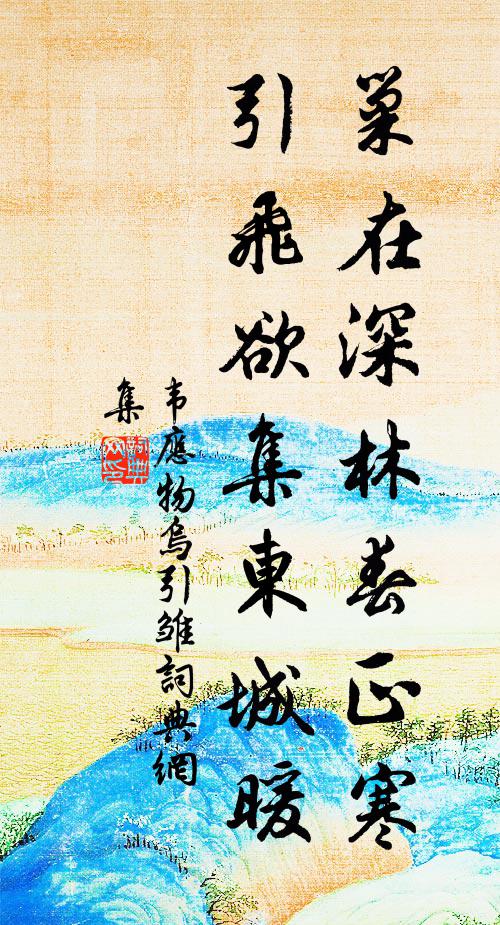 巢在深林春正寒
引飛欲集東城暖
韦應物烏引雛詞典網
集